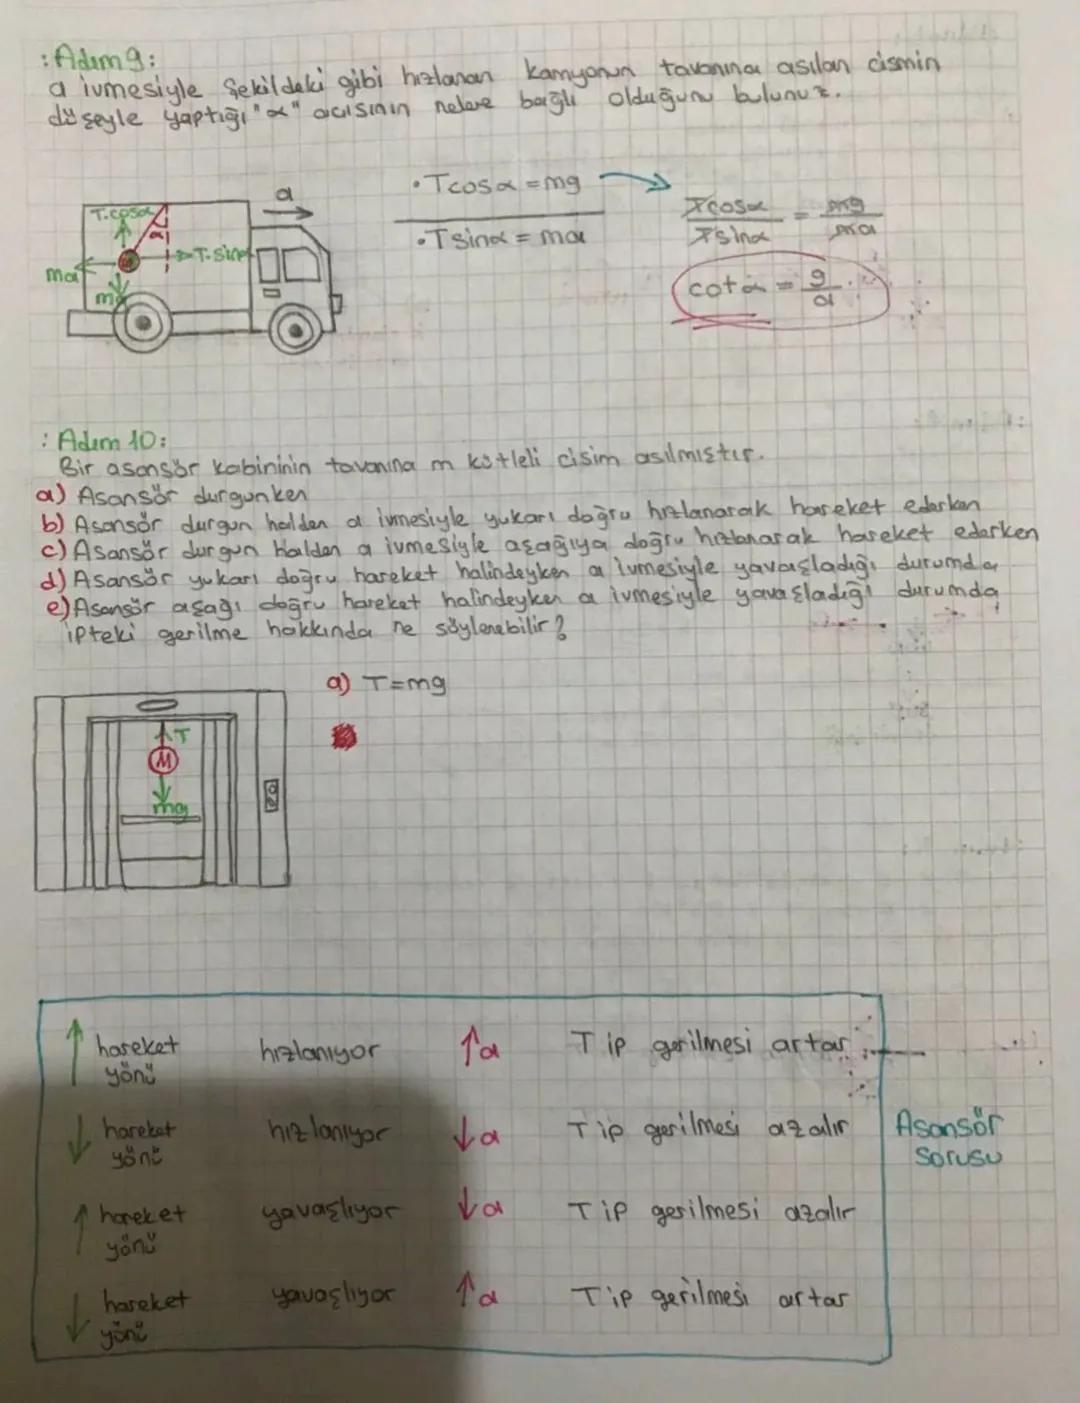 : Adım 9:
a ivmesiyle şekildeki gibi hızlanan kamyonun tavanına asılan cismin
düşeyle yaptığı "α" açısının nelere bağlı olduğunu bulunuz.
a
T.cosα
α
T.sinα
ma
mg
• Tcosα = mg
• Tsinα = ma
Tcosα / Tsinα = mg / ma
cotα = g / a
: Adım 10:
Bir asansör kabininin tavanına m kütleli cisim asılmıştır.
a) Asansör durgunken
b) Asansör durgun halden a ivmesiyle yukarı doğru hızlanarak hareket ederken
c) Asansör durgun halden a ivmesiyle aşağıya doğru hızlanarak hareket ederken
d) Asansör yukarı doğru hareket halindeyken a ivmesiyle yavaşladığı durumda
e) Asansör aşağı doğru hareket halindeyken a ivmesiyle yavaşladığı durumda
ipteki gerilme hakkında ne söylenebilir?
a) T=mg
T
M
mg
↑ hareket yönü hızlanıyor ↑a T ip gerilmesi artar
↓ hareket yönü hızlanıyor ↓a T ip gerilmesi azalır
↑ hareket yönü yavaşlıyor ↓a T ip gerilmesi azalır
↓ hareket yönü yavaşlıyor ↑a T ip gerilmesi artar
Asansör
Sorusu